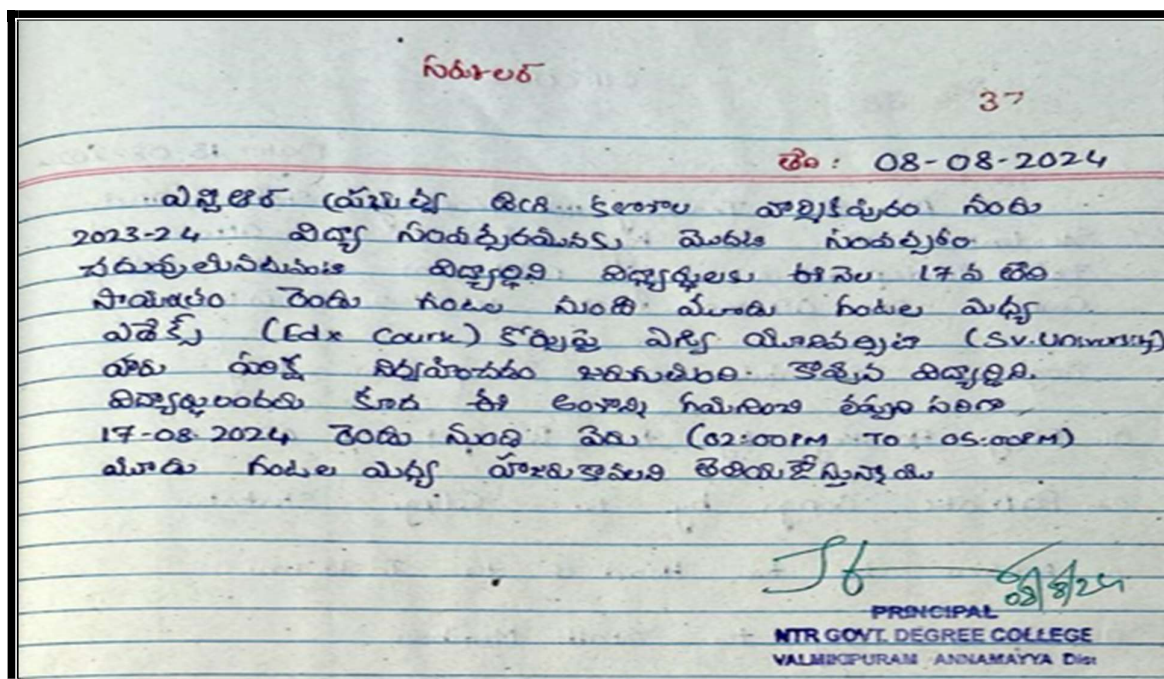 సర్కులర్
37
తేది: 08-08-2024
ఎన్టిఆర్ ప్రభుత్వ డిగ్రీ కళాశాల వాల్మికిపురం నందు
2023-24 విద్యా సంవత్సరమునకు మొదటి సంవత్సరం
చదువుతున్నటువంటి విద్యార్థిని విద్యార్థులకు ఈ నెల 17వ తేది
సాయంత్రం రెండు గంటల నుండి మూడు గంటల మధ్య
ఎడెక్స్ (Edx Course) కోర్సుపై ఎస్వీ యూనివర్సిటి (SV.University)
వారు పరీక్ష నిర్వహించడం జరుగుతుంది. కావున విద్యార్థిని.
విద్యార్థులందరు కూడ ఈ అంశాన్ని గమనించి తప్పని సరిగా
17-08-2024 రెండు నుండి (02:00PM TO 05:00PM)
మూడు గంటల మధ్య హాజరుకావలని తెలియజేస్తున్నాము
08/8/24
PRINCIPAL
NTR GOVT. DEGREE COLLEGE
VALMIKIPURAM ANNAMAYYA Dist